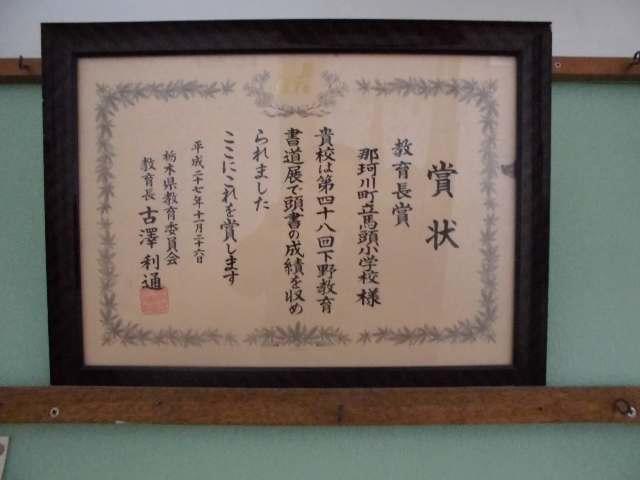 賞状
教育長賞
那珂川町立馬頭小学校様
貴校は第四十八回下野教育
書道展で頭書の成績を収め
られました
ここにこれを賞します
平成二十七年十一月二十六日
栃木県教育委員会
教育長 古澤利通